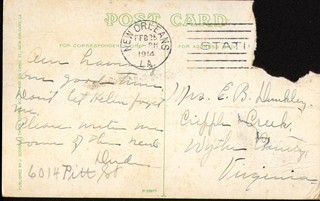 POST CARD
FOR CORRESPONDENCE
NEW ORLEANS
FEB
1914
LA.
STATI
Am having
our good time
Don't let Helen forget
me.
Please write me
some of the news
Dud
6014 Pitt St
Mrs. E. B.
Cripple Creek,
Wythe County,
Virginia